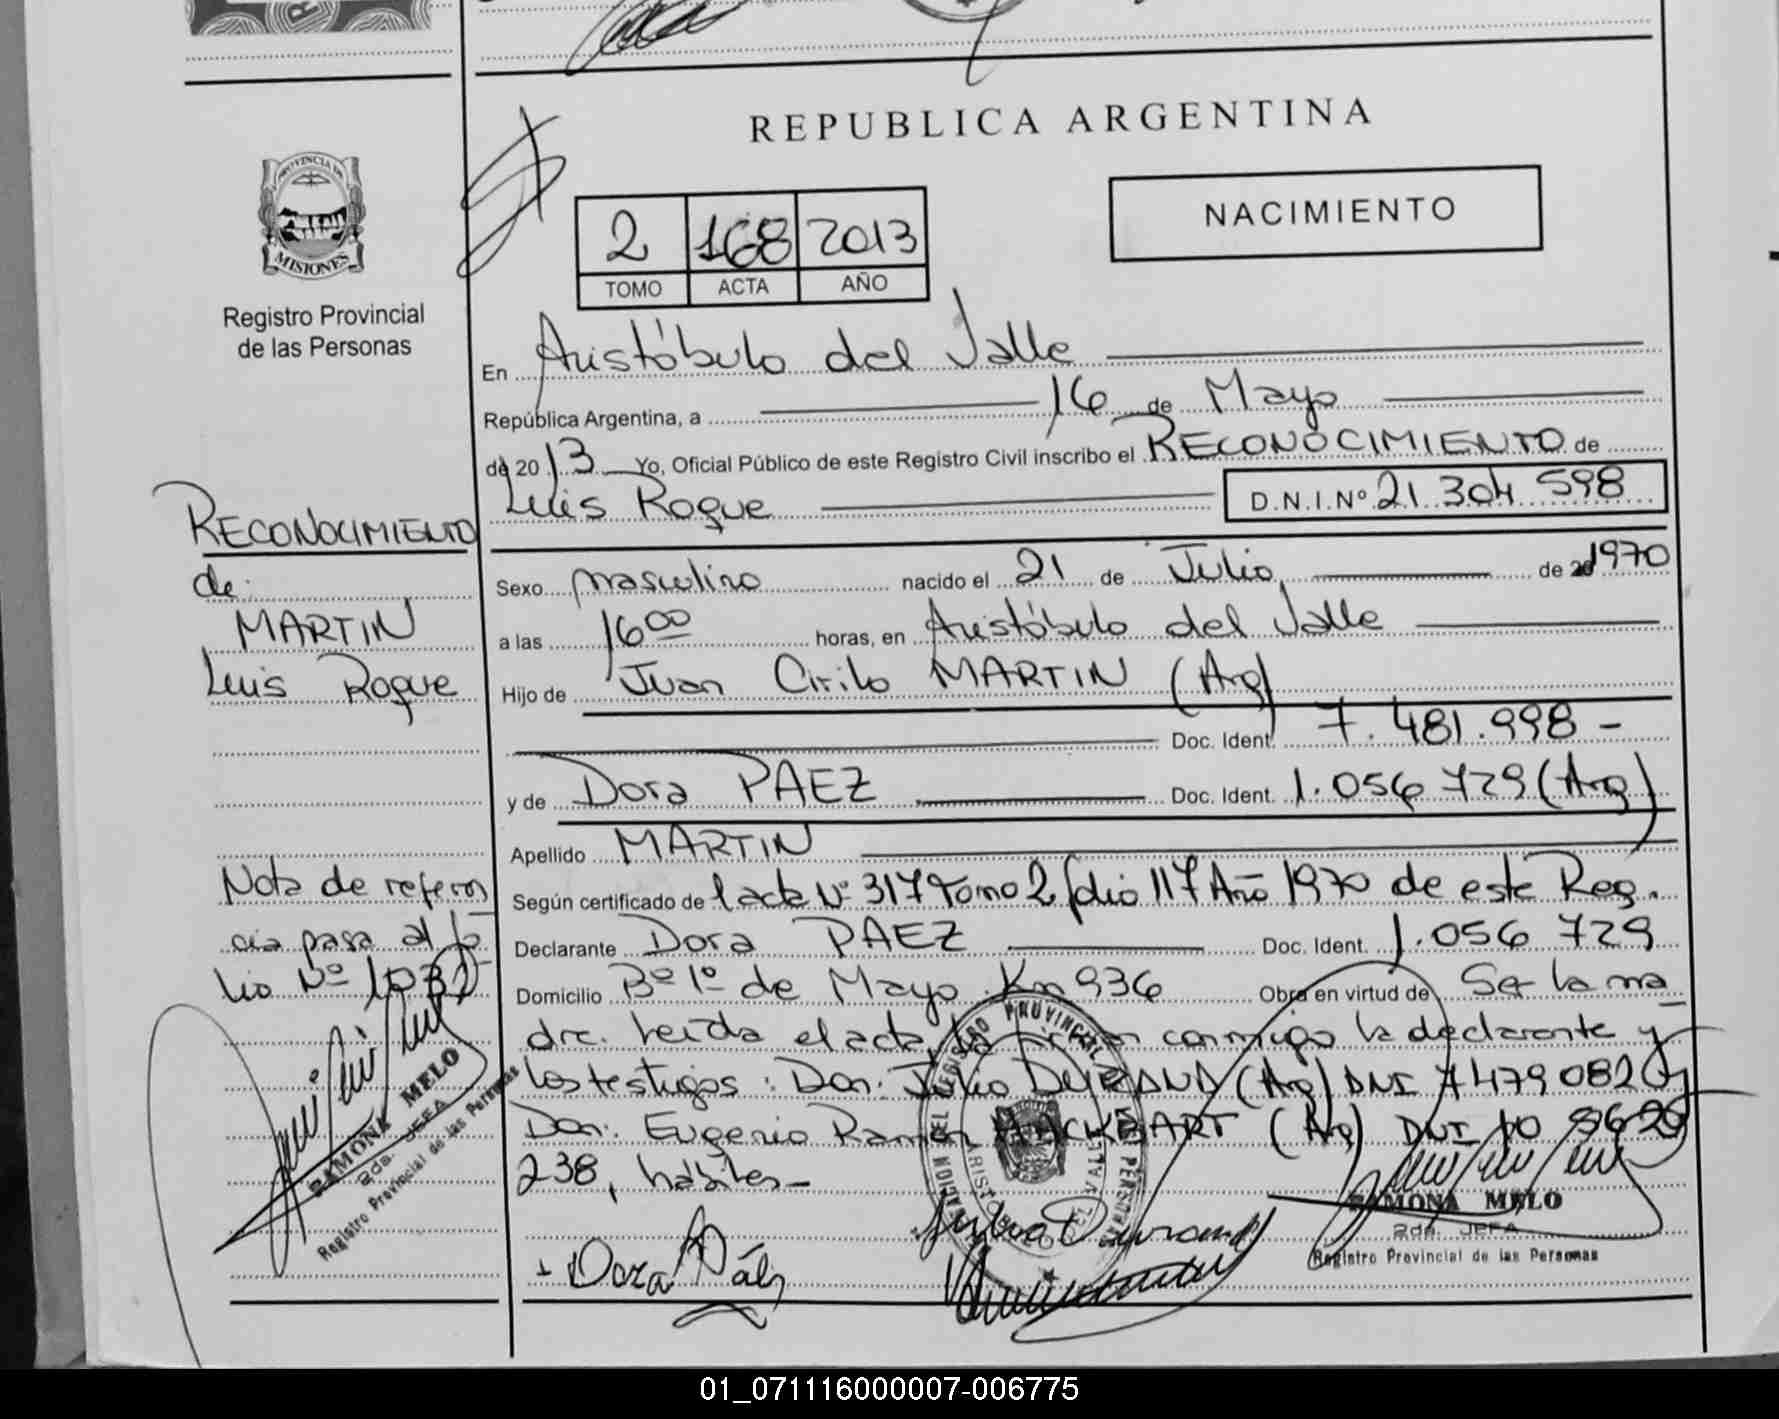 REPUBLICA ARGENTINA
PROVINCIA DE
MISIONES
Registro Provincial
de las Personas
2 168 2013
TOMO ACTA AÑO
NACIMIENTO
En Aristóbulo del Valle
República Argentina, a 16 de Mayo
de 2013 Yo, Oficial Público de este Registro Civil inscribo el RECONOCIMIENTO de
Luis Roque D.N.I.Nº 21.304 598
Sexo masculino nacido el 21 de Julio de 20 1970
a las 16 00 horas, en Aristóbulo del Valle
Hijo de Juan Cirilo MARTIN (Arg)
Doc. Ident. 7.481.998 -
y de Dora PAEZ Doc. Ident. 1.056 729 (Arg)
Apellido MARTIN
Según certificado de acta Nº 317 Tomo 2 folio 117 Año 1970 de este Reg.
Declarante Dora PAEZ Doc. Ident. 1.056 729
Domicilio Bº 1º de Mayo Km 936 Obra en virtud de Ser la ma
dre. Leída el acta, la conmigo la declarante y
los testigos: Don: Julio (Arg) DNI 7 479 082 y
Don: Eugenio Ramón (Arg) DNI 10
238, hábiles-
Dora Páez
RAMONA MELO
2da. JEFA
Registro Provincial de las Personas
RECONOCIMIENTO
de:
MARTIN
Luis Roque
Nota de referen
cia pasa al fo
lio Nº
RAMONA MELO
2da. JEFA
Registro Provincial de las Personas
01_071116000007-006775